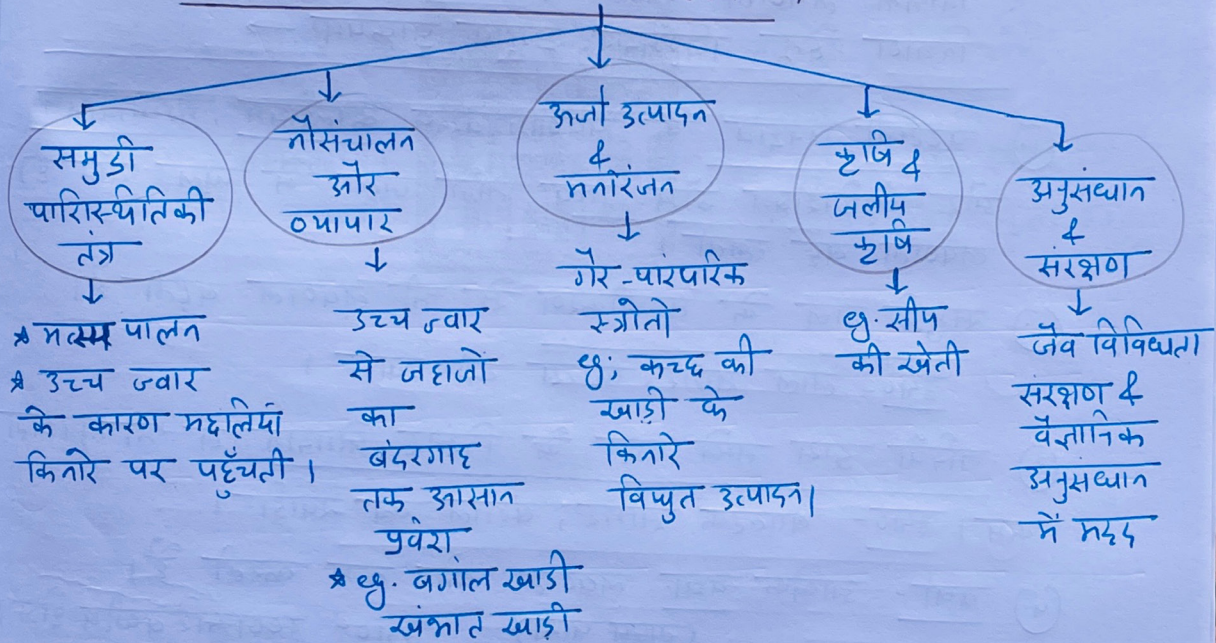 समुद्री
पारिस्थितिकी
तंत्र
★ मत्स्य पालन
★ उच्च ज्वार
के कारण मछलियां
किनारे पर पहुँचती ।
नौसंचालन
और
व्यापार
उच्च ज्वार
से जहाजों
का
बंदरगाह
तक आसान
प्रवेश
★ eg. बंगाल खाड़ी
खंभात खाड़ी
ऊर्जा उत्पादन
&
मनोरंजन
गैर-पारंपरिक
स्त्रोतो
eg; कच्छ की
खाड़ी के
किनारे
विधुत उत्पादन।
कृषि &
जलीय
कृषि
eg. सीप
की खेती
अनुसंधान
&
संरक्षण
जैव विविधता
संरक्षण &
वैज्ञानिक
अनुसंधान
में मदद